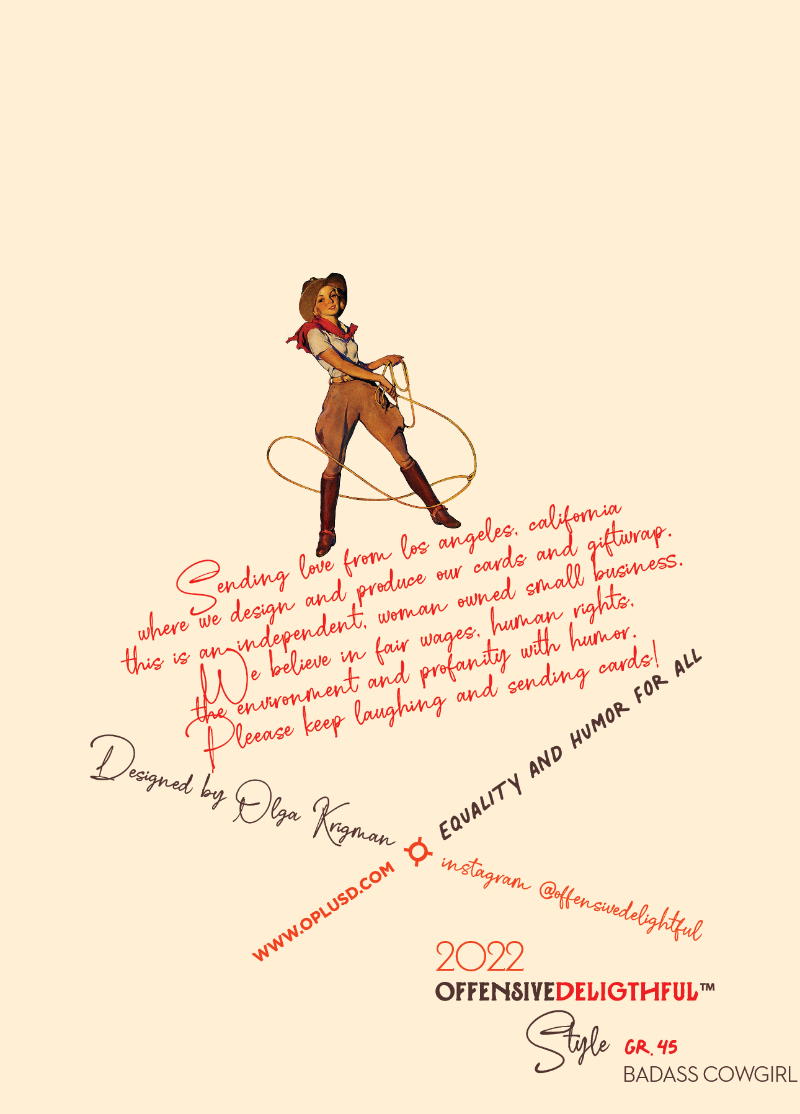 Sending love from los angeles, california
where we design and produce our cards and giftwrap.
this is an independent, woman owned small business.
We believe in fair wages, human rights,
the environment and profanity with humor.
Pleease keep laughing and sending cards!
Designed by Olga Krigman
EQUALITY AND HUMOR FOR ALL
WWW.OPLUSD.COM
instagram @offensivedelightful
2022
OFFENSIVEDELIGTHFUL™
Style GR. 45
BADASS COWGIRL